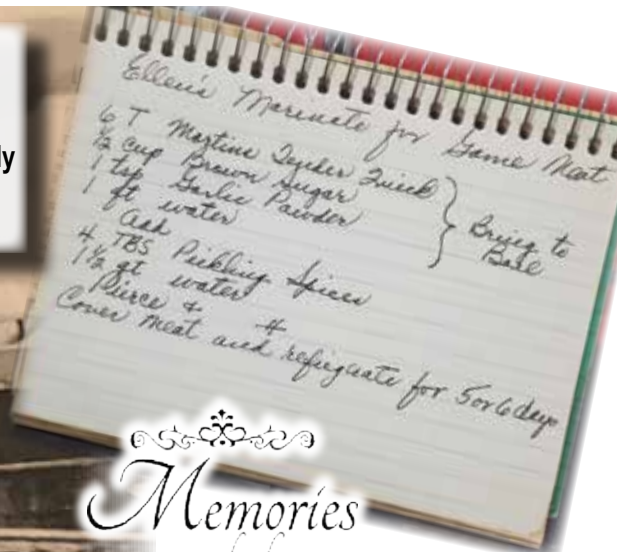 ly
Ellen's Marinate for Game Meat
6 T Mortins Tender Quick
½ cup Brown Sugar
1 tsp Garlic Powder
1 qt water
Bring to
Boil
add
4 TBS Pickling Spices
1½ qt water
Pierce &
Cover meat and refriguate for 5 or 6 days
Memories